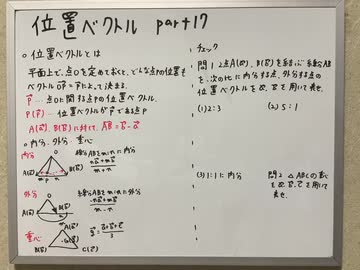 位置ベクトル part17
○位置ベクトルとは
平面上で、点Oを定めておくと、どんな点Pの位置も
ベクトルOP=pによって決まる。
p … 点Oに関する点Pの位置ベクトル
P(p) … 位置ベクトルがpである点P
A(a), B(b)に対して、AB=b-a
○内分・外分・重心
内分
O
A(a) m P n B(b)
線分ABをm:nに内分
na+mb
m+n
外分
O
A(a) B(b)
線分ABをm:nに外分
-na+mb
m-n
重心
A(a)
G(g)
B(b) C(c)
g=a+b+c
3
チェック
問1 2点A(a), B(b)を結ぶ線分AB
を、次の比に内分する点、外分する点の
位置ベクトルをa, bを用いて表せ。
(1) 2:3 (2) 5:1
(3) 1:1に内分
問2 △ABCの重心
をa, b, cを用いて
表せ。